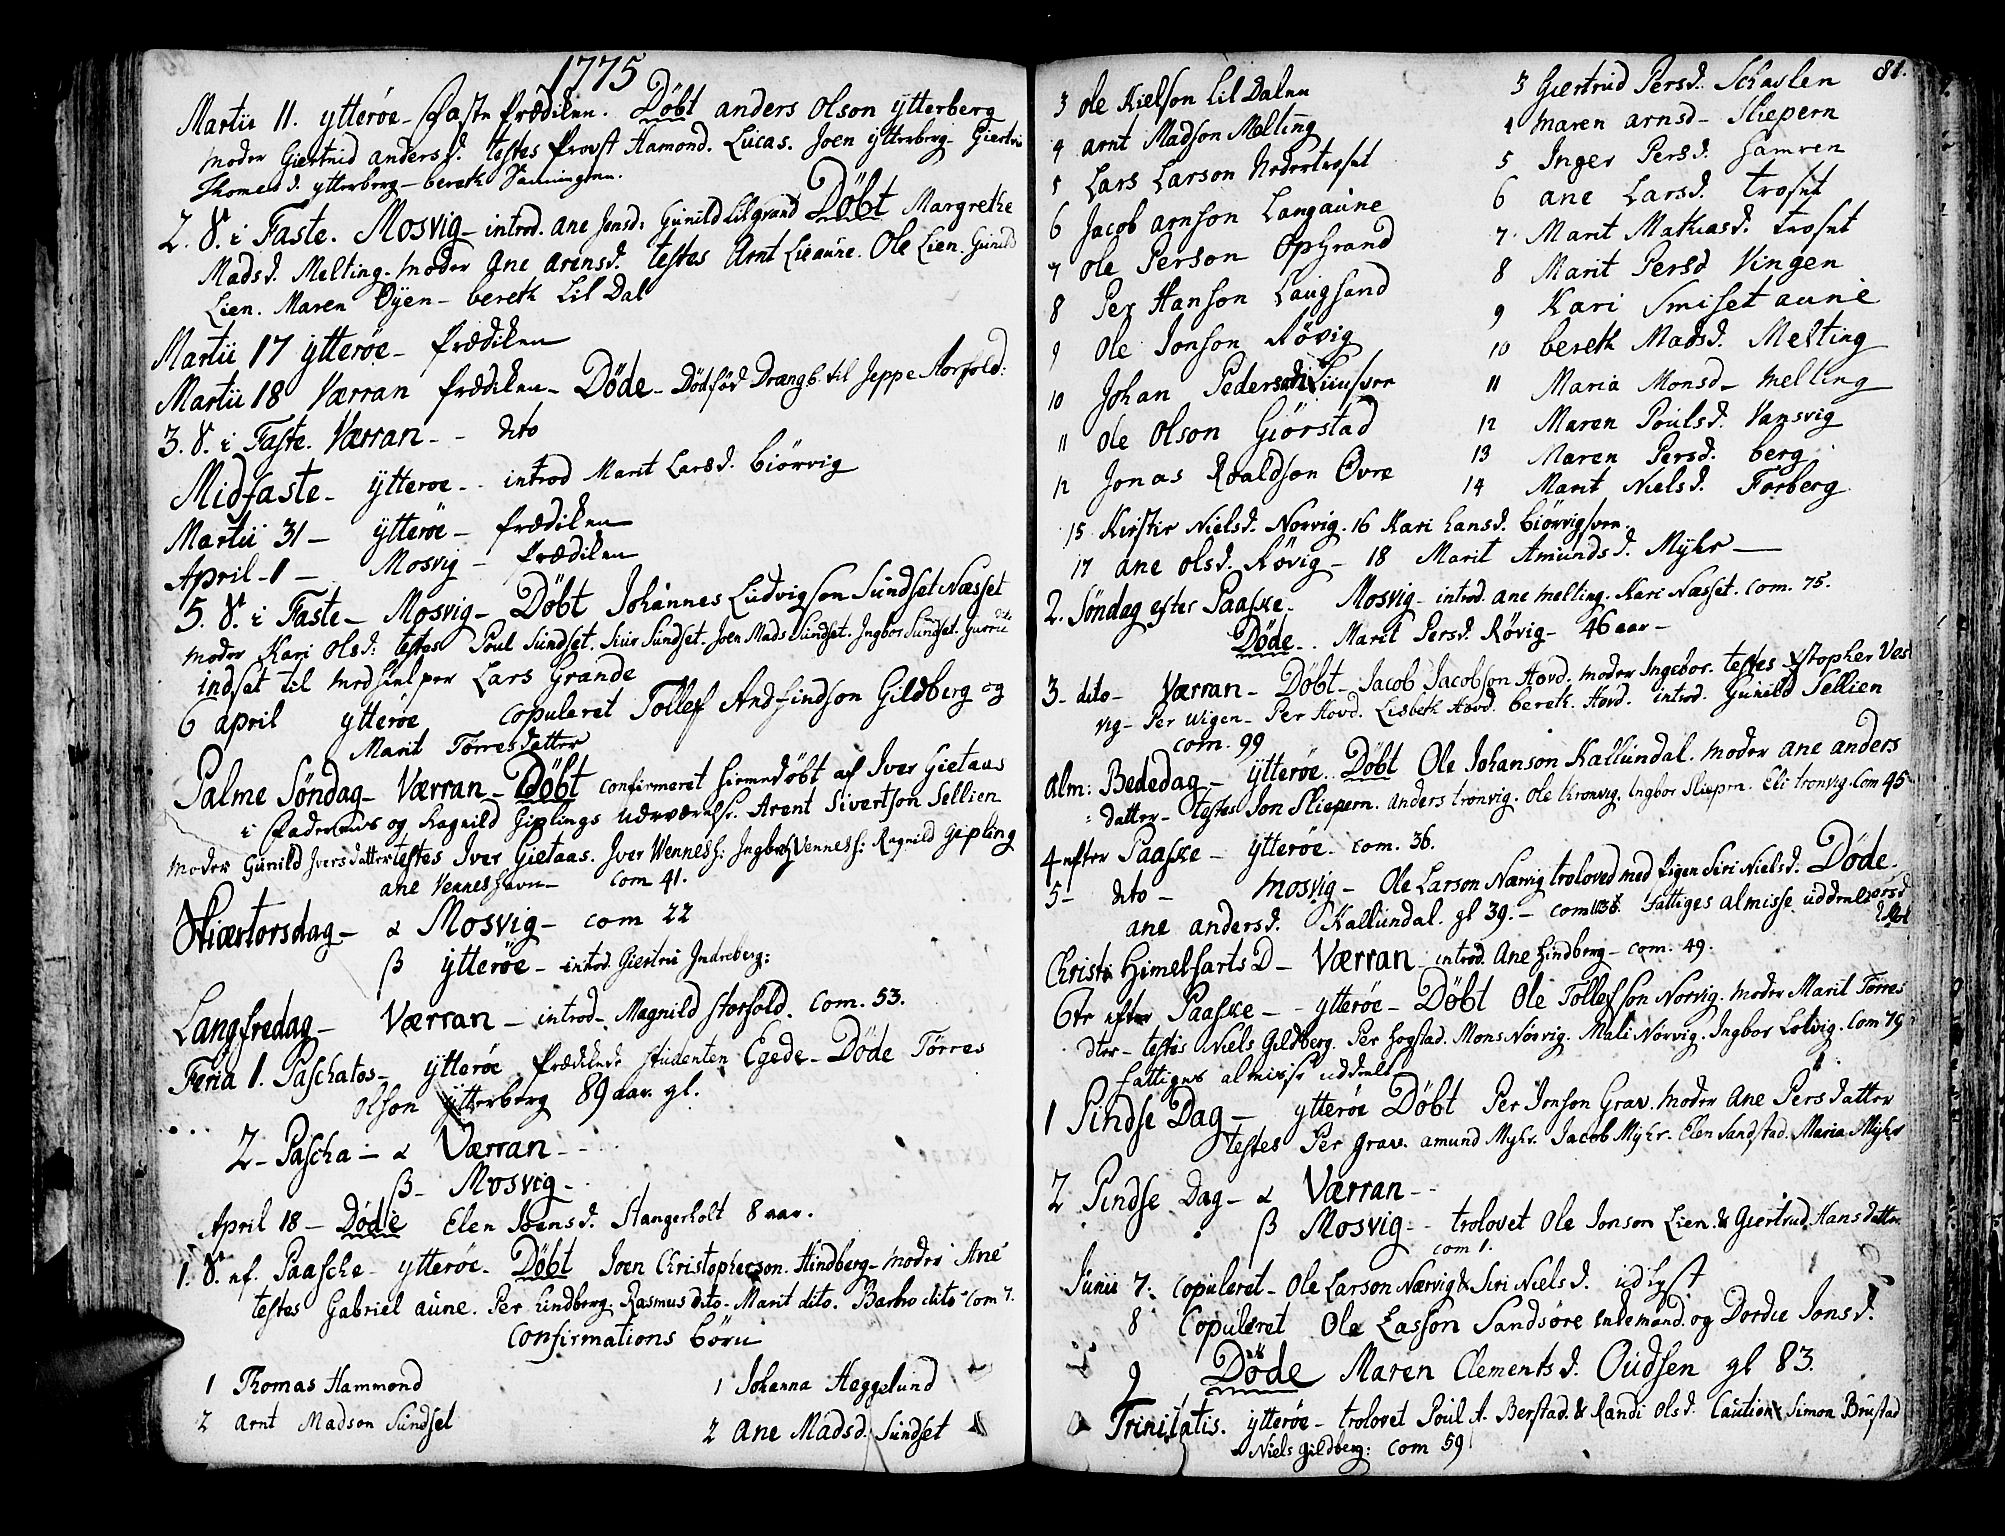 1775
Martii 11. ytterøe - Faste Prædiken. Døbt anders Olson ytterberg
moder Giertrud andersd. testes Provst Hamond. Lucas. Joen ytterberg - Giertru
Thomesd. ytterberg - bereth
2. S. i Faste. Mosvig - introd. ane Jensd: Gunild Lilgrand Døbt Margrethe
Madsd. Melting. moder ane arensd. testes Arnt Lieaune. Ole Lien. Gunild
Lien. Maren Øyen - bereth Lil Dal
Martii 17 ytterøe - Prædiken
Martii 18 Værran Prædiken - Døde - Dødfød Drængb. til Jeppe Storfold:
3. S. i Faste. Værran - - dito
Midfaste - ytteroe - - introd Marit Larsd. biørvig
Martii 31 - ytterøe - Prædiken
April - 1 - Mosvig - Prædiken
5. S. i Faste - Mosvig - Døbt Johannes Ludvigson Sundset Næsset
moder Kari Olsd: testes Poul Sundset. Siur Sundset. Joen Mads Sundset. Ingbor Sundset. Gurru dito
indset til medhielper Lars Grande
6 april ytterøe copuleret Tollef Andfindson Gildberg og
Marit Tørresdatter
Palme Søndag - Værran - Døbt confirmeret hiemedøbt af Iver Gietaas
i Faderens og Ragnild Giplings nærværelse. Arent Sivertson Sellien
moder Gunild Iversdatter testes Iver Gietaas. Iver Wennesh: Ingbor Vennesh: Ragnild Gipling
ane Venneshavn - Com 41.
Skiærtorsdag - α Mosvig - com 22
β ytterøe - introd. Giertru Indreberg:
Langfredag - Værran - introd. Magnild storfold. Com. 53.
Feria 1. Paschatos - ytterøe Prædikede studenten Egede - Døde Tørres
Olson ytterberg 89 aar. gl.
2 - Pascha - α Værran - -
β - Mosvig -
April 18 - Døde Elen Joensd. Stangerholt 8 aar.
1. S. ef. Paasche - ytterøe. Døbt Joen Christopherson. Hindberg - moder Ane
testes Gabriel aune. Per hindberg. Rasmus dito - Marit dito. Barbro dito - Com 7.
Confirmations børn
1 Thomas Hammond
2 Arnt Madson Sundset
1 Johanna Heggelund
2 Ane Madsd. Sundset
81.
3 Ole Kielson Lil Dalen
4 arnt Madson Melting
5 Lars Larson Nedertroset
6 Jacob arnson Langaune
7 Ole Person Opgrand
8 Per Hanson Laugsand
9 Ole Jonson Røvig
10 Johan Pederson
11 Ole Olson Giørstad
12 Jonas Roaldson Øvre
3 Giertrud Persd. Schaslen
4 maren arnsd - Sliepern
5 Inger Persd. Hamren
6 ane Larsd. troset
7. Marit Mathiasd. troset
8 Marit Persd Vingen
9 Kari Smisetaune
10 bereth Madsd. Melting
11 Maria Monsd - melting
12 Maren Poulsd. Vansvig
13 Maren Persd. berg
14 Marit Nielsd. Forberg
15 Kirstie Nielsd. Norvig. 16 Kari hansd. biørvigsven.
17 ane Olsd. Røvig - 18 Marit Amundsd. Myhr -
2. Søndag efter Paaske - Mosvig - introd. ane melting. Kari Næsset. com. 75.
Døde - . Marit Persd. Røvig - 46 aar -
3 - dito - Værran - Døbt - Jacob Jacobson Hovd. moder Ingebor. testes Xstopher Vest
vig - Per wigen - Per Hovd. Lisbeth Hovd. bereth. Hovd. introd. Gunild Sellien
com. 99
Alm: Bededag - ytterøe. Døbt Ole Johanson Kallundal. moder ane anders
datter - testes Jon Sliepern. Anders tronvig. Ole tronvig. Ingbor Sliepern. Eli tronvig. Com 45 -
4 efter Paaske - ytterøe - com. 36.
5 - dito - mosvig - Ole Larson Nærvig troloved med Pigen Siri Nielsd. Døde -
ane andersd. Kallundal. gl 39. - com 113. fattiges almisse uddeelt
Christi Himelfarts D - Værran - introd. Ane hindberg - com. 49.
6te efter Paaske - - ytterøe - Døbt Ole Tollefson Norvig. moder Marit Tørres
dter - testes Niels Gildberg. Per hogstad. Mons Norvig. Mali Norvig. Ingbor Lotvig. Com 79 -
fattiges almisse uddeelt
1 Pindse Dag - ytterøe Døbt Per Jonson Grav. moder Ane Persdatter
testes Per grav. amund Myhr. Jacob Myhr. Elen Sandstad. Maria Myhr
2 Pindse Dag - α Værran - -
β Mosvig - - trolovet Ole Jonson Lien & Giertrud Hansdatter
com 1.
Junii 7. Copuleret - Ole Larson Nærvig & Siri Nielsd. udhyst
8 Copuleret Ole Lasson Sandsøre enkemand. og Dordie Jonsd.
9 Døde Maren Clementsd. Oudsen gl 83.
Trinitatis. ytterøe - trolovet Poul A. Berstad. & Randi Olsd. Caution Simon Brustad
Niels Gildberg: com 59